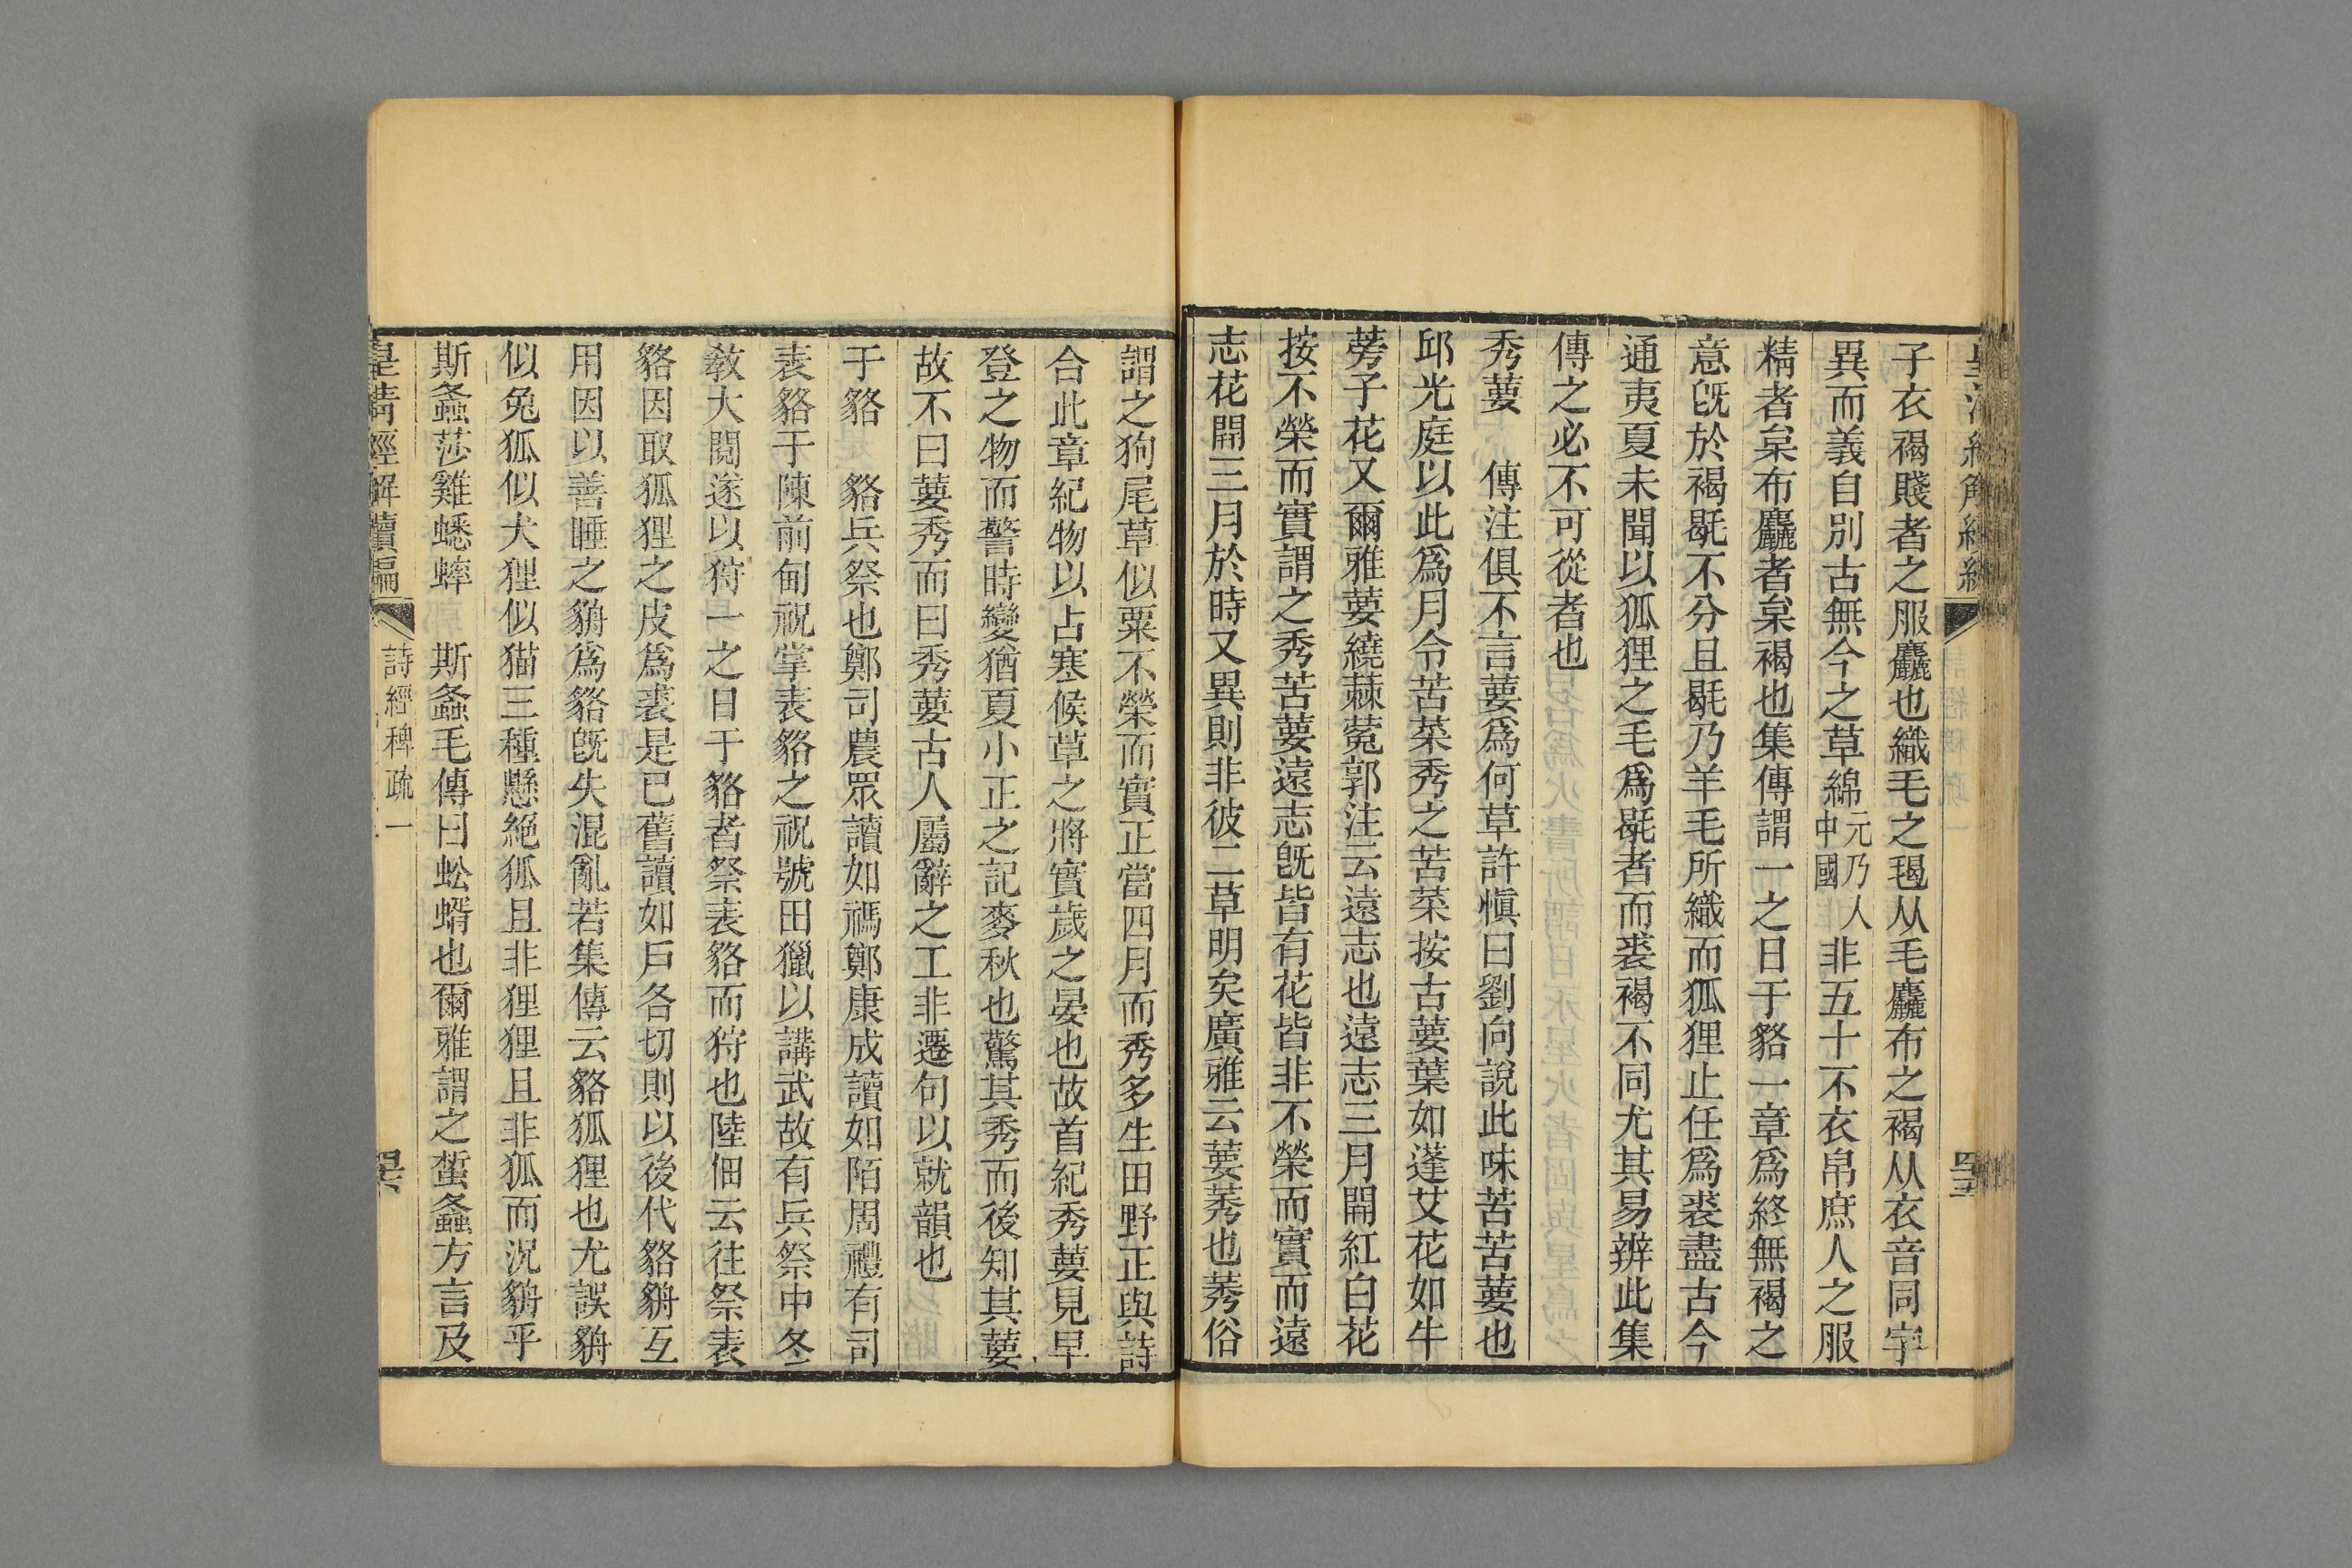 子衣褐賤者之服麤也織毛之毼从毛麤布之褐从衣音同字
異而義自別古無今之草綿元乃人中國非五十不衣帛庶人之服
精者枲布麤者枲褐也集傳謂一之日于貉一章爲終無褐之
意旣於褐毼不分且毼乃羊毛所織而狐狸止任爲裘盡古今
通夷夏未聞以狐狸之毛爲毼者而裘褐不同尤其易辨此集
傳之必不可從者也
秀葽　傳注俱不言葽爲何草許愼曰劉向說此味苦苦葽也
邱光庭以此爲月令苦菜秀之苦菜按古葽葉如蓬艾花如牛
蒡子花又爾雅葽繞蕀蒬郭注云遠志也遠志三月開紅白花
按不榮而實謂之秀苦葽遠志旣皆有花皆非不榮而實而遠
志花開三月於時又異則非彼二草明矣廣雅云葽莠也莠俗
謂之狗尾草似粟不榮而實正當四月而秀多生田野正與詩
合此章紀物以占寒候草之將實歲之晏也故首紀秀葽見早
登之物而警時變猶夏小正之記麥秋也驚其秀而後知其葽
故不曰葽秀而曰秀葽古人屬辭之工非遷句以就韻也
于貉　貉兵祭也鄭司農眾讀如禡鄭康成讀如陌周禮有司
表貉于陳前甸祝掌表貉之祝號田獵以講武故有兵祭中冬
敎大閱遂以狩一之日于貉者祭表貉而狩也陸佃云往祭表
貉因取狐狸之皮爲裘是已舊讀如戶各切則以後代貉貈互
用因以善睡之貈爲貉旣失混亂若集傳云貉狐狸也尤誤貈
似兔狐似犬狸似猫三種懸絕狐且非狸狸且非狐而況貈乎
斯螽莎雞蟋蟀　斯螽毛傳曰蚣蝑也爾雅謂之蜤螽方言及
皇淸經解續編
詩經稗疏一